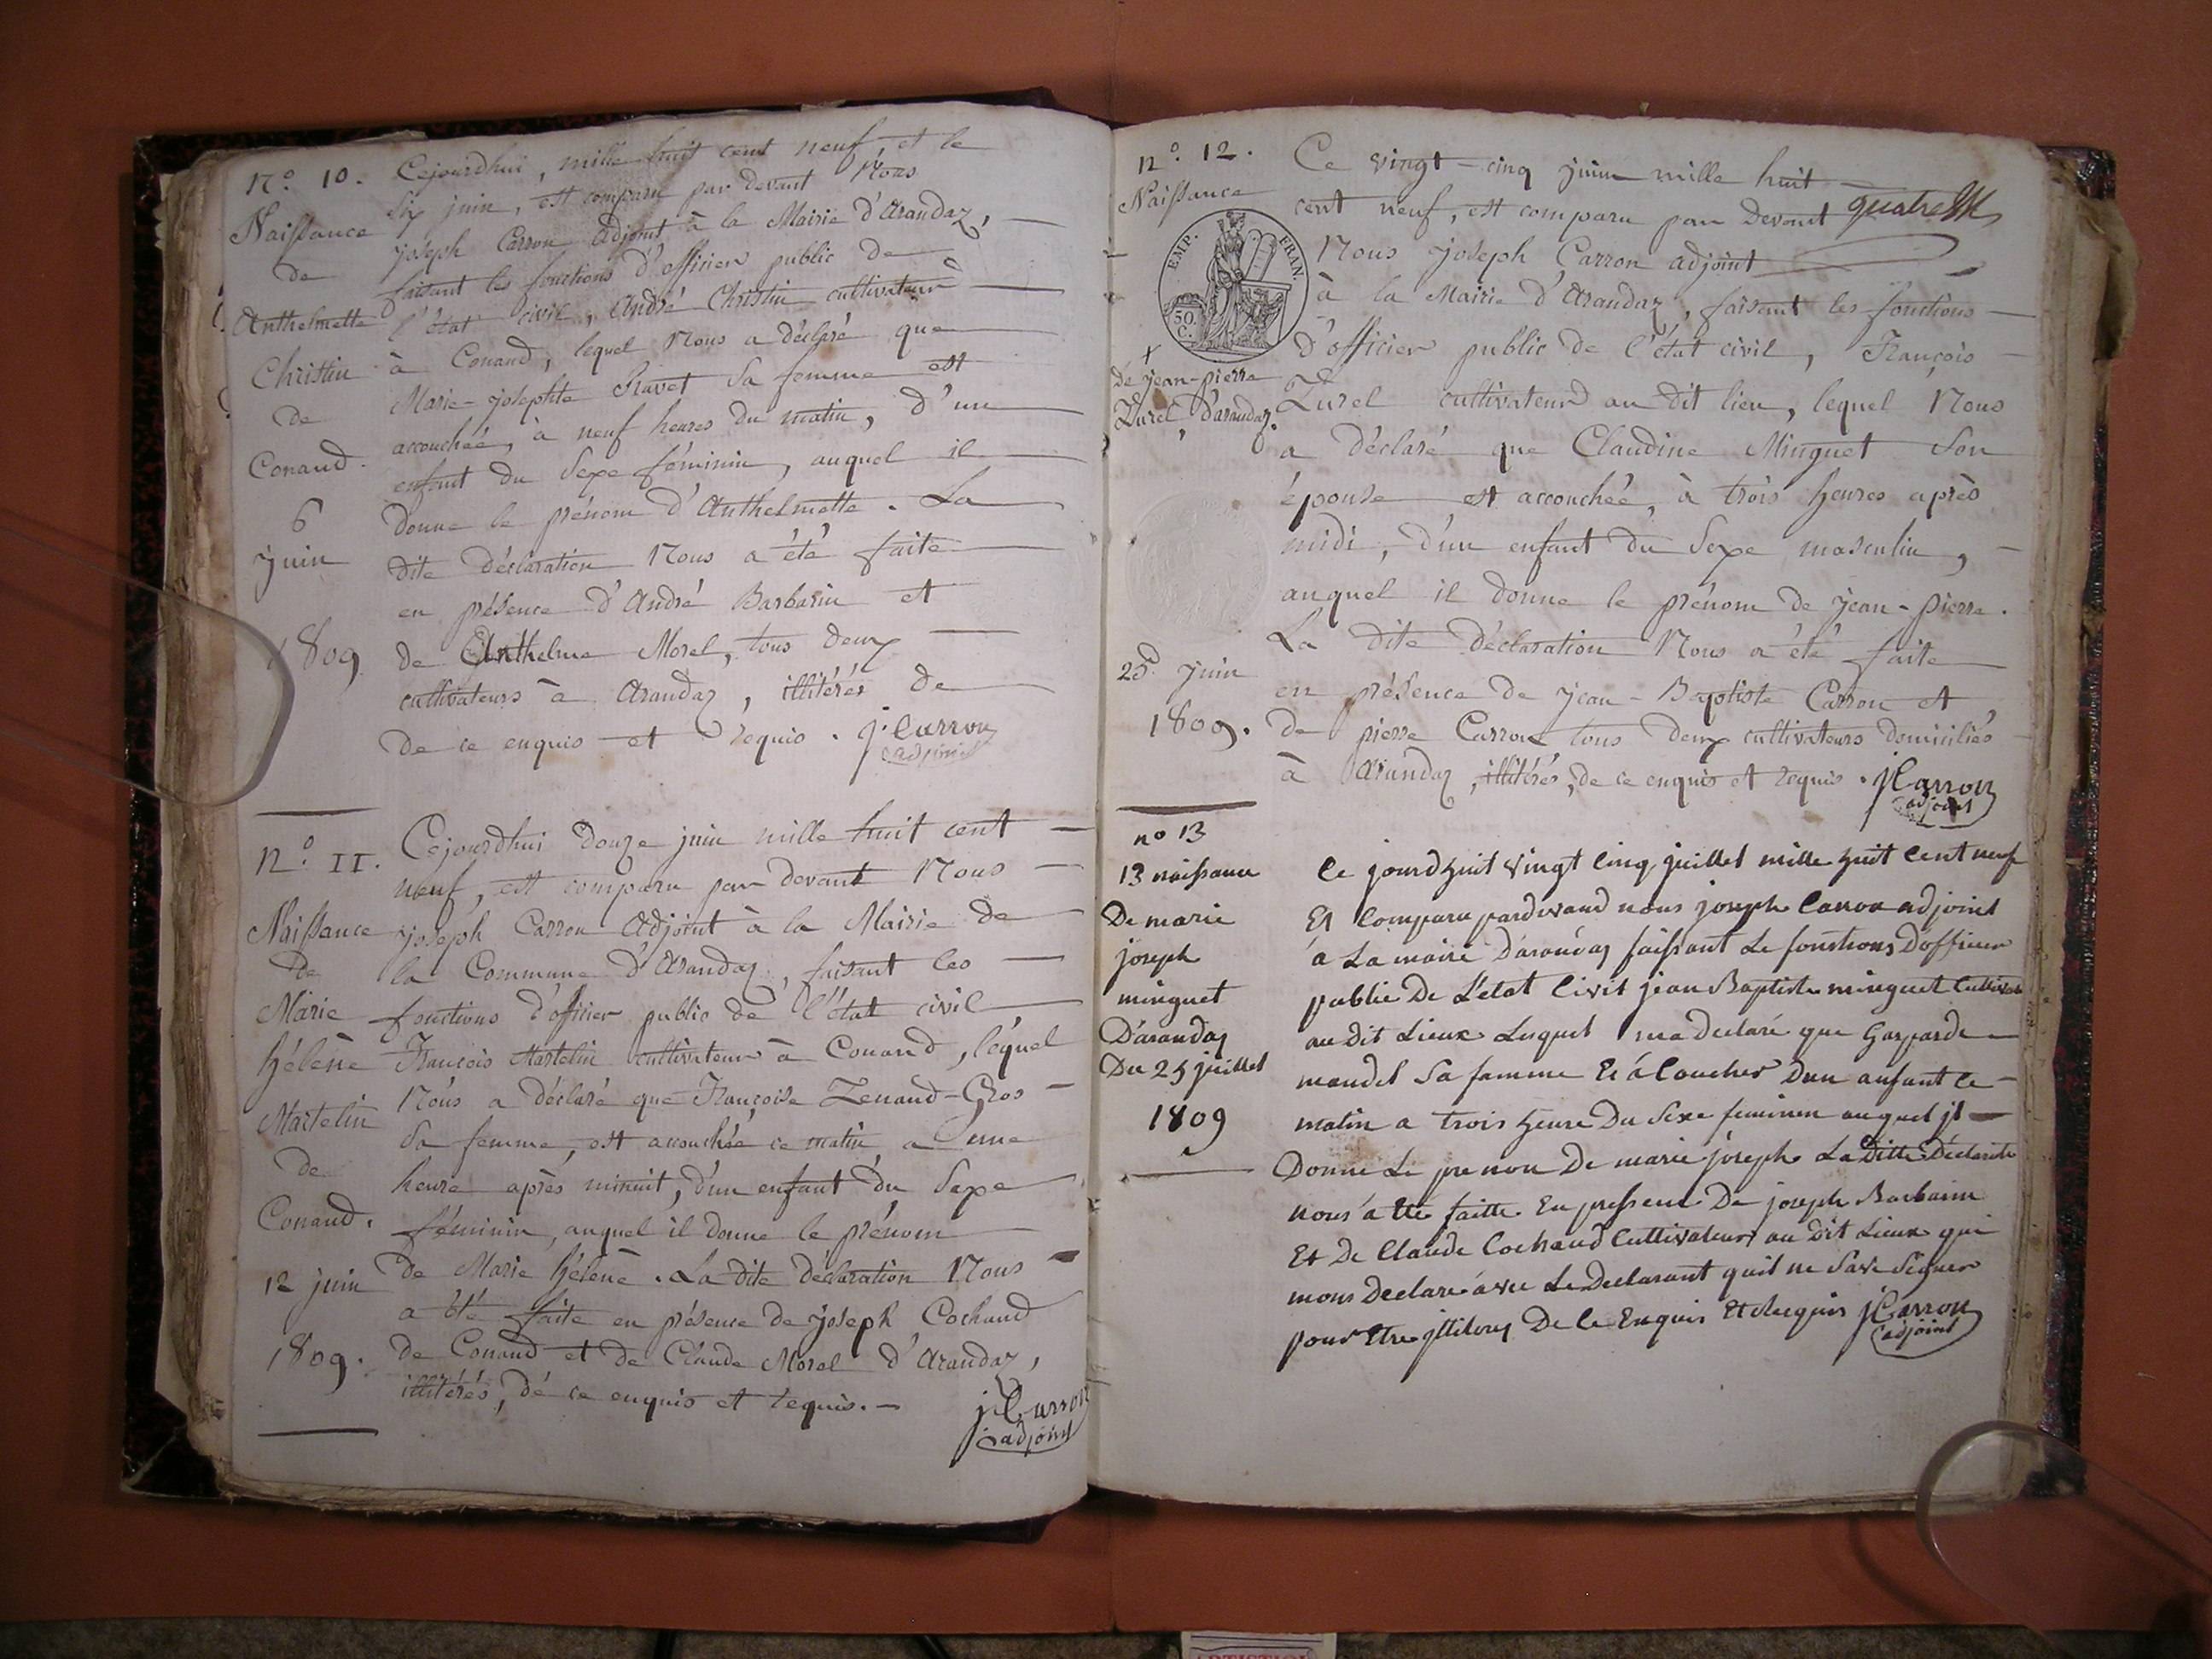 N.º 10.
Naissance
de
Anthelmette
Christin
de
Conand.
6
juin
1809
Cejourdhui, mille huit cent neuf, et le
six juin, est comparu par devant Nous
joseph Carron adjoint à la Mairie d'Arandaz,
faisant les fonctions d'officier public de
l'état civil, André Christin cultivateur
à Conand, lequel Nous a déclaré que
Marie-josephte Ravet sa femme est
accouchée, à neuf heures du matin, d'un
enfant du sexe féminin, auquel il
donne le prénom d'Anthelmette. La
dite déclaration Nous a été faite
en présence d'André Barbarin et
de Anthelme Morel, tous deux
cultivateurs à Arandaz, illitérés de
de ce enquis et requis. j. Carron
adjoint
N.º 11.
Naissance
de
Marie
hélène
Martelin
de
Conand.
12 juin
1809.
Cejourdhui douze juin mille huit cent
neuf, est comparu par devant Nous
joseph Carron adjoint à la Mairie de
la Commune d'Arandaz, faisant les
fonctions d'officier public de l'état civil,
François Martelin cultivateur à Conand, lequel
Nous a déclaré que Françoise Zenand-Gros
sa femme, est accouchée ce matin, a une
heure après minuit, d'un enfant du sexe
féminin, auquel il donne le prénom
de Marie hélène. La dite déclaration Nous
a été faite en présence de joseph Cochand
de Conand et de Claude Morel d'Arandaz,
illitérés, de ce enquis et requis.
j. Carron
adjoint
N.º 12.
Naissance
EMP. FRAN.
50.
C.
de jean-pierre
Zurel, d'arandaz.
25 juin
1809.
quatre
Ce vingt-cinq juin mille huit
cent neuf, est comparu par devant
Nous joseph Carron adjoint
à la Mairie d'Arandaz, faisant les fonctions
d'officier public de l'état civil, François
Zurel cultivateur au dit lieu, lequel Nous
a déclaré que Claudine Minguet son
épouse est accouchée, à trois heures après
midi, d'un enfant du sexe masculin,
auquel il donne le prénom de jean-pierre.
La dite déclaration Nous a été faite
en présence de jean-Baptiste Carron et
de pierre Carron tous deux cultivateurs domiciliés
à Arandaz, illitérés, de ce enquis et requis. j Carron
adjoint
n.º 13
13 naissance
De marie
joseph
minguet
D'arandaz
Du 25 juillet
1809
Ce jourdhuit vingt Cinq juillet mille huit Cent neuf
Et Comparu pardevand nous joseph Carron adjoint
a La mairé D'arandaz faissant Le fonstions D'officier
public De L'etat Civil jean Baptiste minguet Cultivat
au Dit Lieux Lequel ma declaré que Gasparde
mandel Sa famme Et á Coucher Dun anfant Ce
matin a trois heure Du Sexe feminen auquel jl
Donne Le prenon De marie joseph La Ditte Déclarati
nous a été faitte En pressence De joseph Barbarin
Et De Claude Cochaud Cultivateur au Dit Lieux qui
mons Declaré avec Le Declarant quil ne Save Signer
pour Etre De Ce Enquis Et Requis j Carron
adjoint